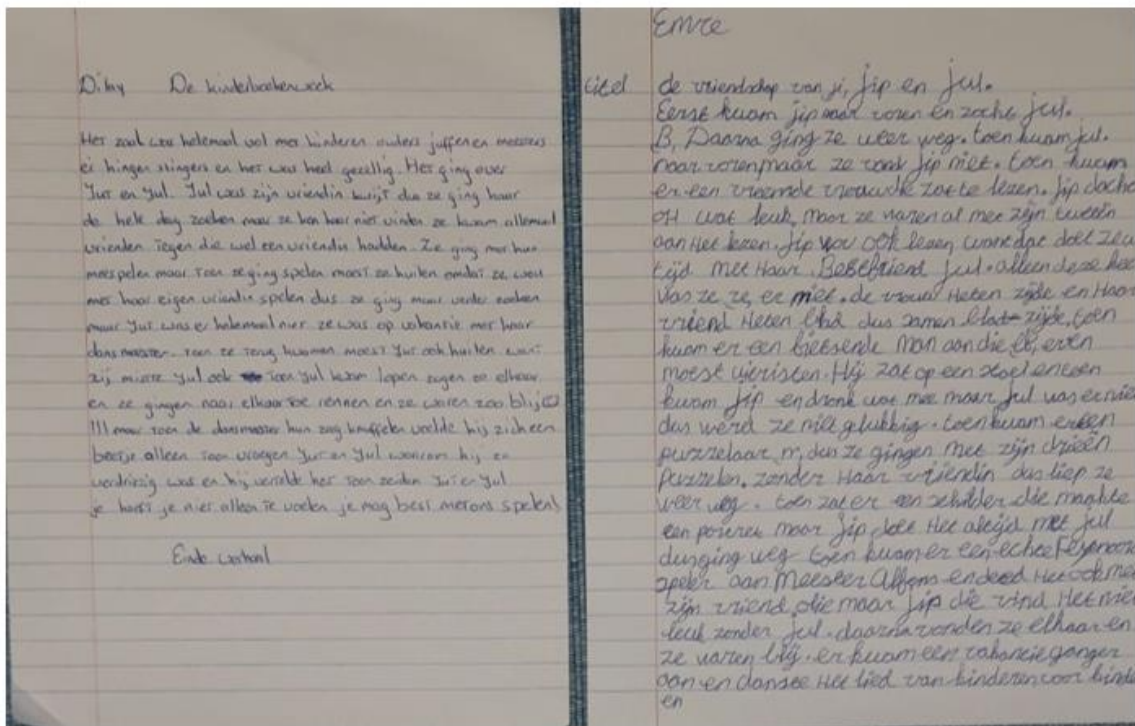 Dilay De kinderboekenweek
Het zaal was helemaal vol met kinderen ouders juffen en meesters
er hingen slingers en het was heel gezellig. Het ging over
Jut en Jul. Jul was zijn vriendin kwijt dus ze ging haar
de hele dag zoeken maar ze kon haar niet vinden ze kwam allemaal
vrienden tegen die wel een vriendin hadden. Ze ging met hun
meespelen maar toen ze ging spelen moest ze huilen omdat ze wou
met haar eigen vriendin spelen dus ze ging maar verder zoeken
maar Jut was er helemaal niet ze was op vakantie met haar
dansmeester. toen ze terug kwamen moest Jut ook huilen want
zij miste Jul ook toen Jul kwam lopen zagen ze elkaar
en ze gingen naar elkaar toe rennen en ze waren zoo blij
!!! maar toen de dansmeester hun zag knuffelen voelde hij zich een
beetje alleen toen vroegen Jut en Jul waarom hij zo
verdrietig was en hij vertelde het toen zeiden Jut en Jul
je hoeft je niet alleen te voelen je mag best met ons spelen!
Einde verhaal
Emre
titel de vriendschap van ji, jip en jul.
Eerst kwam jip naar voren en zocht jul.
B, Daarna ging ze weer weg. toen kwam jul.
naar voren maar ze vond jip niet. toen kwam
er een vreemde vrouw die zat te lezen. jip dacht
oH wat leuk, maar ze waren al met zijn tweeën
aan Het lezen. jip wou ook lezen want dat doet ze al
tijd met Haar Bestefriend jul. alleen deze kee
was ze ze, er niet. de vrouw Heten zijde en Haar
vriend Heten dus samen zijde, toen
kwam er een fietsende man aan die even
moest uitrusten. Hij zat op een stoel en toen
kwam jip en dronk wat mee maar jul was er nie
dus werd ze niet gelukkig. toen kwam er een
puzzelaar, dus ze gingen met zijn drieën
Puzzelen. zonder Haar vriendin dus liep ze
weer weg. toen zat er een schilder die maakte
een portret maar jip doet Het altijd met jul
dus ging weg toen kwam er een echte
speler aan Meester Alfons en deed Het ook met
zijn vriend, maar jip die vind Het nie
leuk zonder jul. daarna vonden ze elkaar en
ze waren blij. er kwam een vakantieganger
aan en danste Het lied van kinderen voor kinde
en